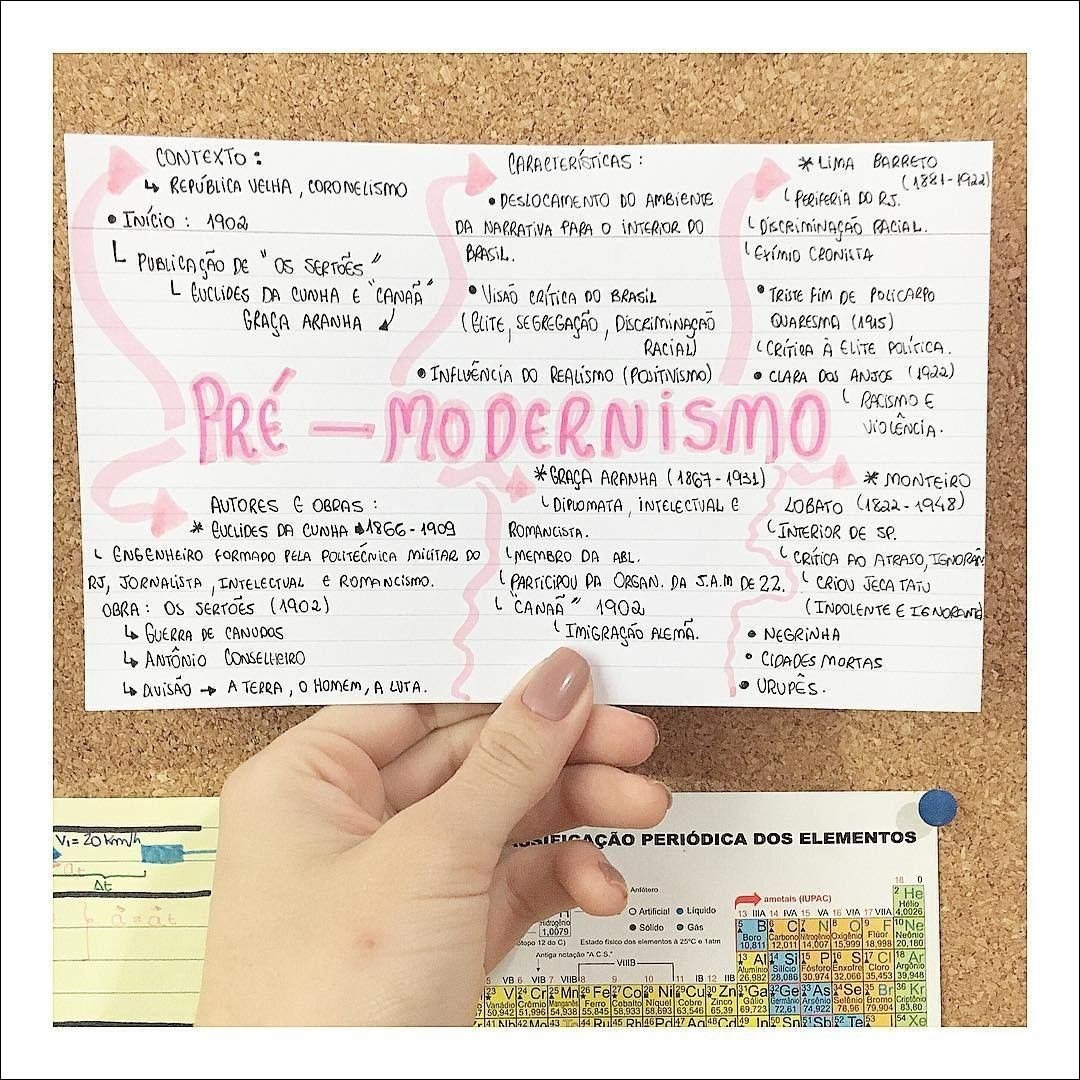 CONTEXTO:
↳ REPÚBLICA VELHA, CORONELISMO
• INÍCIO: 1902
└ PUBLICAÇÃO DE "OS SERTÕES"
└ EUCLIDES DA CUNHA E "CANAÃ"
GRAÇA ARANHA ↙
CARACTERÍSTICAS:
• DESLOCAMENTO DO AMBIENTE
DA NARRATIVA PARA O INTERIOR DO
BRASIL.
• VISÃO CRÍTICA DO BRASIL
(ELITE, SEGREGAÇÃO, DISCRIMINAÇÃO
RACIAL)
• INFLUÊNCIA DO REALISMO (POSITIVISMO)
* LIMA BARRETO
(1881-1922)
└ PERIFERIA DO RJ.
└ DISCRIMINAÇÃO RACIAL.
└ EXÍMIO CRONISTA
• TRISTE FIM DE POLICARPO
QUARESMA (1915)
└ CRÍTICA À ELITE POLÍTICA.
• CLARA DOS ANJOS (1922)
└ RACISMO E
VIOLÊNCIA.
PRÉ-MODERNISMO
AUTORES E OBRAS:
* EUCLIDES DA CUNHA • 1866-1909
└ ENGENHEIRO FORMADO PELA POLITÉCNICA MILITAR DO
RJ, JORNALISTA, INTELECTUAL E ROMANCISMO.
OBRA: OS SERTÕES (1902)
↳ GUERRA DE CANUDOS
↳ ANTÔNIO CONSELHEIRO
↳ DIVISÃO → A TERRA, O HOMEM, A LUTA.
* GRAÇA ARANHA (1867-1931)
└ DIPLOMATA, INTELECTUAL E
ROMANCISTA.
└ MEMBRO DA ABL.
└ PARTICIPOU DA ORGAN. DA S.A.M DE 22.
└ "CANAÃ" 1902
└ IMIGRAÇÃO ALEMÃ.
* MONTEIRO
LOBATO (1822-1948)
└ INTERIOR DE SP.
└ CRÍTICA AO ATRASO, IGNORÂN
└ CRIOU JECA TATU
(INDOLENTE E IGNORANTE)
• NEGRINHA
• CIDADES MORTAS
• URUPÊS.
V₁ = 20 km/h
Δt
SIFICAÇÃO PERIÓDICA DOS ELEMENTOS
Anfótero
Artificial Líquido
Sólido Gás
Estado físico dos elementos à 25ºC e 1atm
Hidrogênio
1,0079
topo 12 do C)
Antiga notação "A.C.S."
ametais (IUPAC)
18 0
13 IIIA 14 IVA 15 VA 16 VIA 17 VIIA
2 He Hélio 4,0026
5 B Boro 10,811
6 C Carbono 12,011
7 N Nitrogênio 14,007
8 O Oxigênio 15,999
9 F Flúor 18,998
10 Ne Neônio 20,180
13 Al Alumínio 26,982
14 Si Silício 28,086
15 P Fósforo 30,974
16 S Enxofre 32,066
17 Cl Cloro 35,453
18 Ar Argônio 39,948
VIIIB
5 VB 6 VIB 7 VIIB 8 9 10 11 IB 12 IIB
23 V Vanádio 50,942
24 Cr Crômio 51,996
25 Mn Manganês 54,938
26 Fe Ferro 55,845
27 Co Cobalto 58,933
28 Ni Níquel 58,693
29 Cu Cobre 63,546
30 Zn Zinco 65,39
31 Ga Gálio 69,723
32 Ge Germânio 72,61
33 As Arsênio 74,922
34 Se Selênio 78,96
35 Br Bromo 79,904
36 Kr Criptônio 83,80
41 Nb 42 Mo 43 Tc 44 Ru 45 Rh 46 Pd 47 Ag 48 Cd 49 In 50 Sn 51 Sb 52 Te 53 I 54 Xe